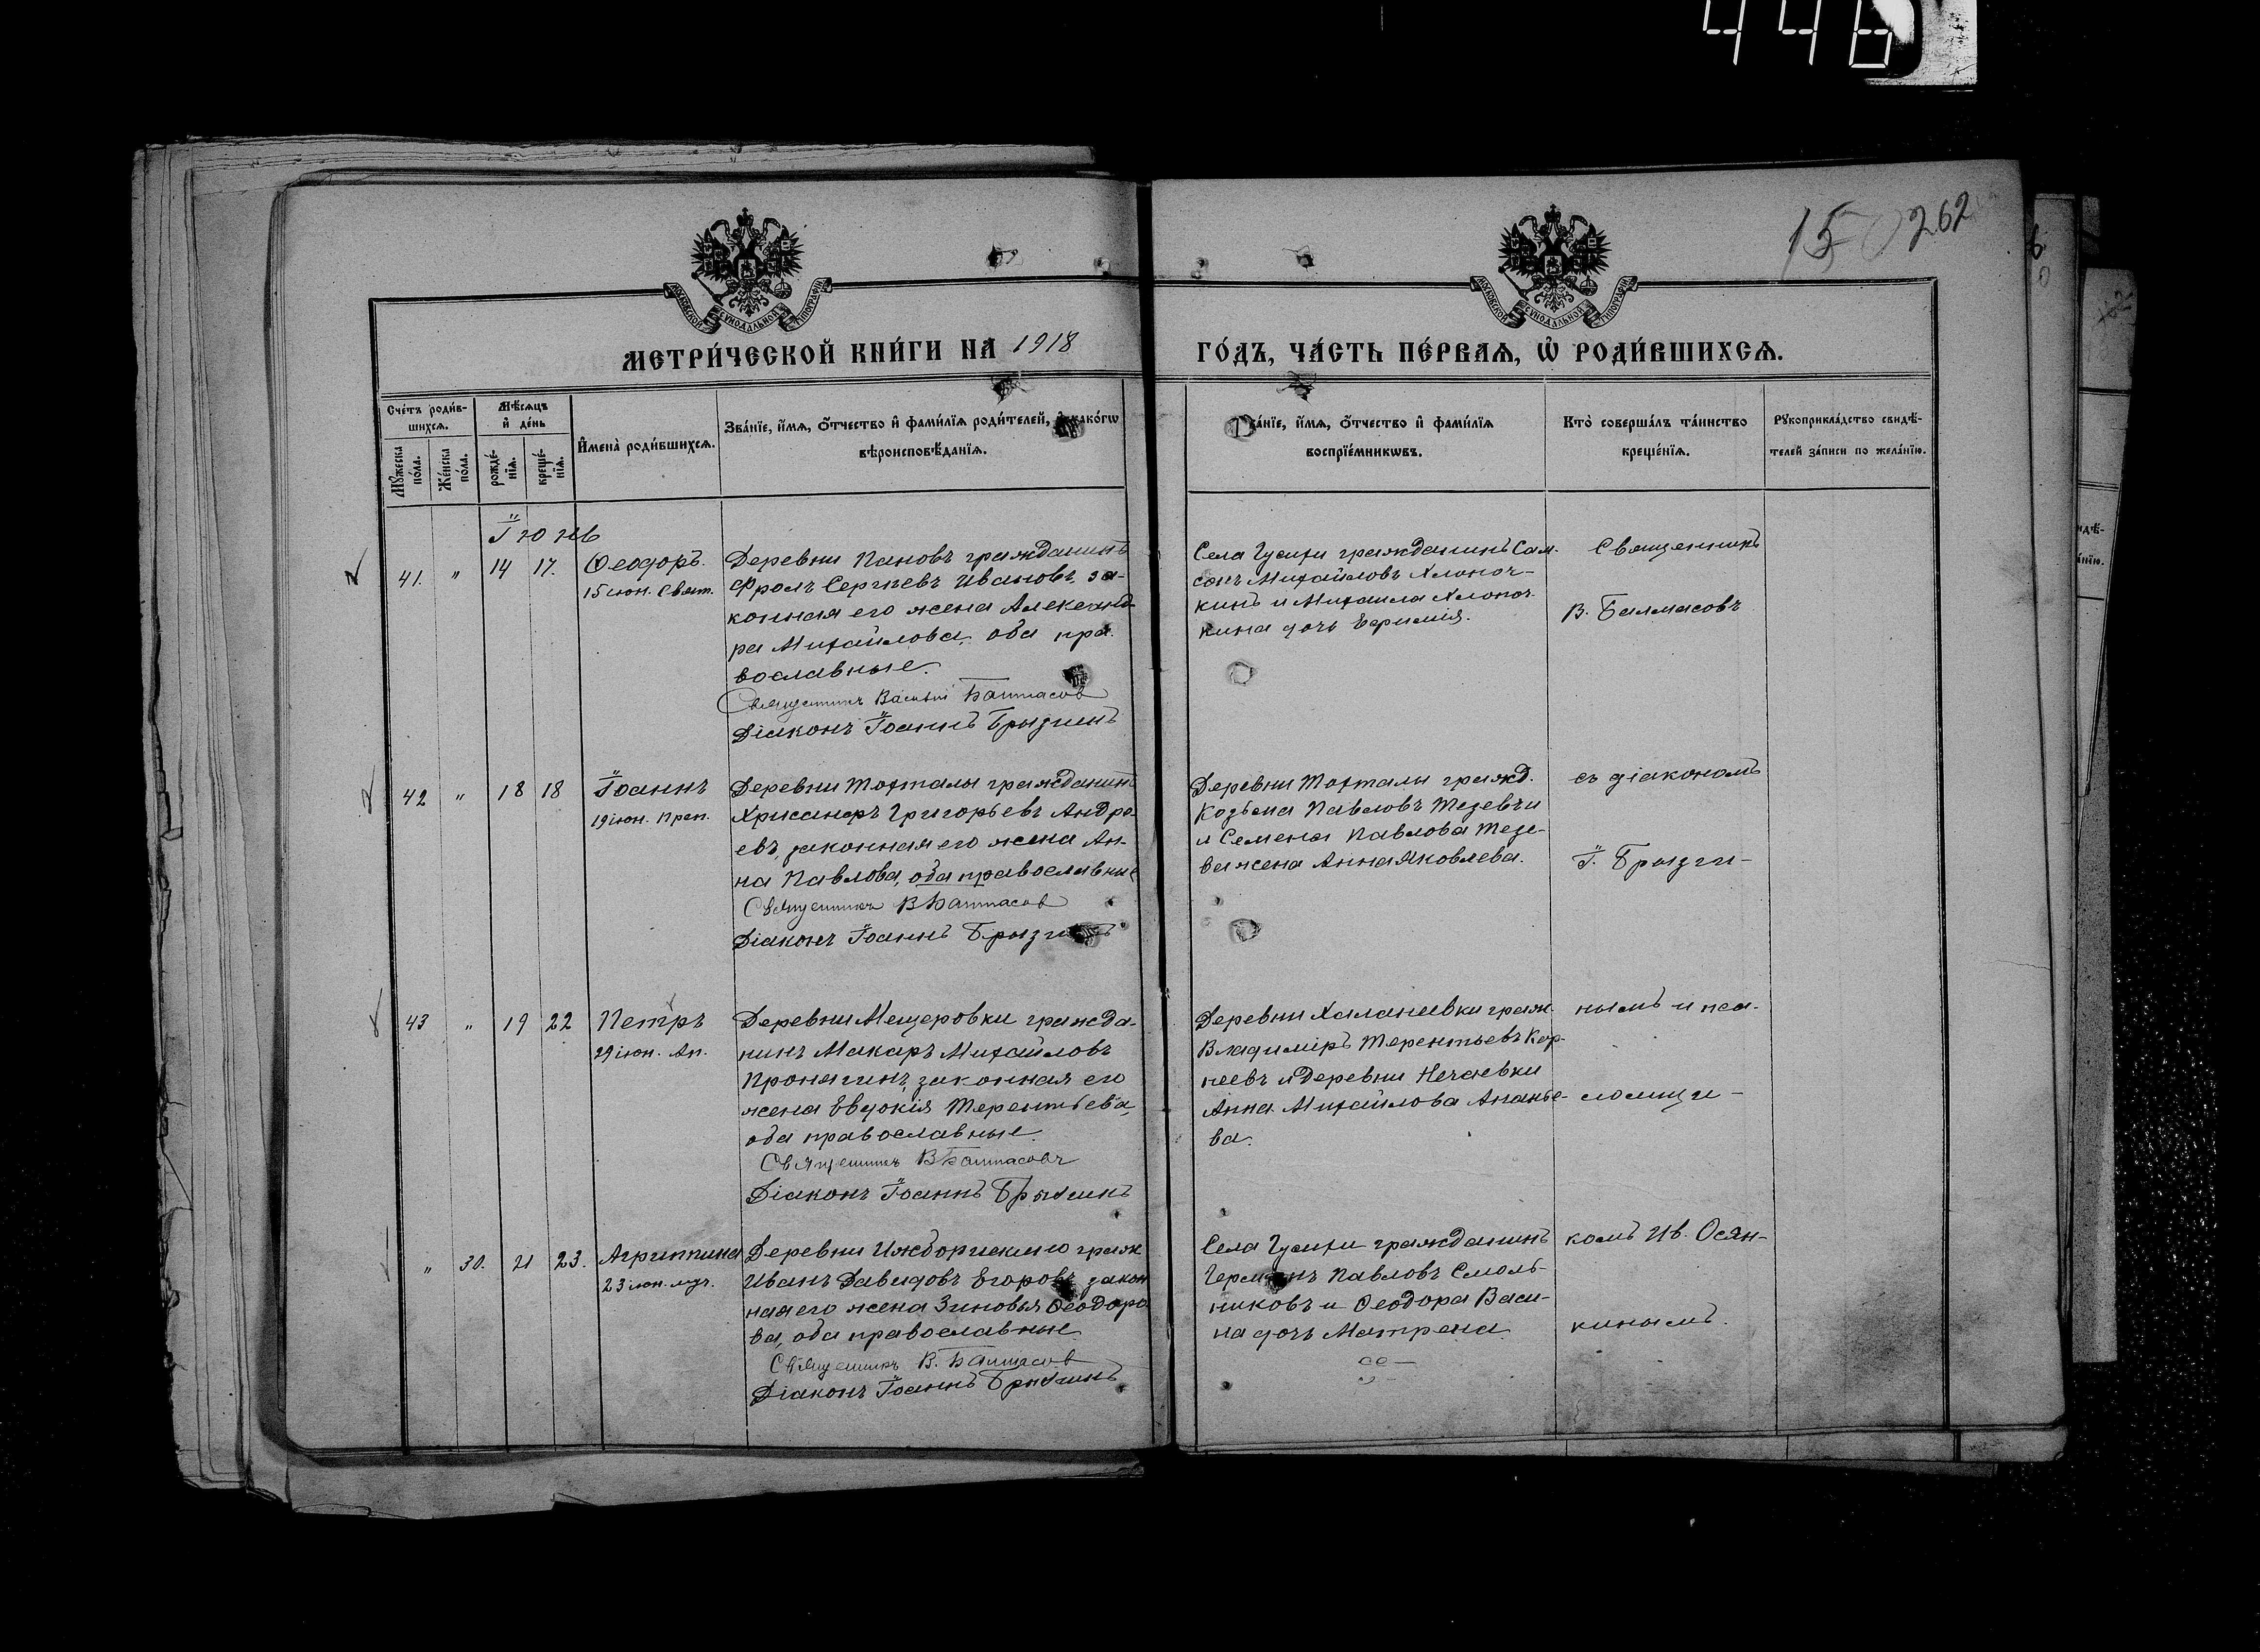 446
150 262
МОСКОВСКОЙ СУНОДАЛЬНОЙ ТИПОГРАФІИ
МОСКОВСКОЙ СУНОДАЛЬНОЙ ТИПОГРАФІИ
МЕТРИ́ЧЕСКОЙ КНИ́ГИ НА 1918
ГО́ДЪ, ЧА́СТЬ ПЕ́РВАѦ, Ѡ҆ РОДИ́ВШИХСѦ.
Сче́тъ роди́в-
шихсѧ.
Мꙋ́жеска
по́ла.
Же́нска
по́ла.
Мѣ́сѧцъ
и҆ де́нь
рожде́-
нїѧ.
креще́-
нїѧ.
И҆мена̀ роди́вшихсѧ.
Зва́нїе, и҆́мѧ, ѻ҆́тчество и҆ фами́лїѧ роди́телей, и҆ како́гѡ
вѣроисповѣ́данїѧ.
Зва́нїе, и҆́мѧ, ѻ҆́тчество и҆ фами́лїѧ
воспрїе́мникѡвъ.
Кто̀ соверша́лъ та́инство
креще́нїѧ.
Рꙋкоприкла́дство свидѣ́-
телей за́писи по жела́нїю.
Іюнь
41. " 14 17.
Ѳеодоръ.
15 іюн. Свят.
Деревни Пановъ гражданинъ
Фролъ Сергѣевъ Ивановъ, за-
конная его жена Александ-
ра Михайлова, оба пра-
вославные.
Священникъ Василій Балмасов
Діаконъ Іоаннъ Брызгинъ
Села Гусихи гражданинъ Сам-
сонъ Михайловъ Хлопоч-
кинъ и Михаила Хлопоч-
кина дочь Евфимія.
Священникъ
В. Балмасовъ
42 " 18 18
Іоаннъ
19 іюн. Преп.
Деревни Тохталы гражданинъ
Хрисанфъ Григорьевъ Андре-
евъ, законная его жена Ан-
на Павлова, оба православные
Священникъ В Балмасов
Діаконъ Іоаннъ Брызгинъ
Деревни Тохталы гражд.
Козьма Павловъ Тезевъ и
и Семена Павлова Тезе-
ва жена Анна Яковлева.
съ діакономъ
І. Брызги-
43 " 19 22
Петръ
29 іюн. Ап.
Деревни Мещеровки гражда-
нинъ Макаръ Михайловъ
Пронягинъ, законная его
жена Евдокія Терентьева,
оба православные.
Священникъ В Балмасовъ
Діаконъ Іоаннъ Брызгинъ
Деревни Халанеевки граж.
Владиміръ Терентьевъ Кор-
неевъ и деревни Нечаевки
Анна Михайлова Ананье-
ва.
нымъ и пса-
ломщи-
" 30. 21 23.
Агриппина
23 іюн. муч.
Деревни граж
Иванъ Давидовъ Егоровъ, закон
ная его жена Зиновья Ѳеодоро
ва, оба православные
Священникъ В. Балмасов
Діаконъ Іоаннъ Брызгинъ
Села Гусихи гражданинъ
Германъ Павловъ Смоль-
никовъ и Ѳеодора Васи-
на дочь Матрена.
комъ Ив. Осян-
кинымъ.